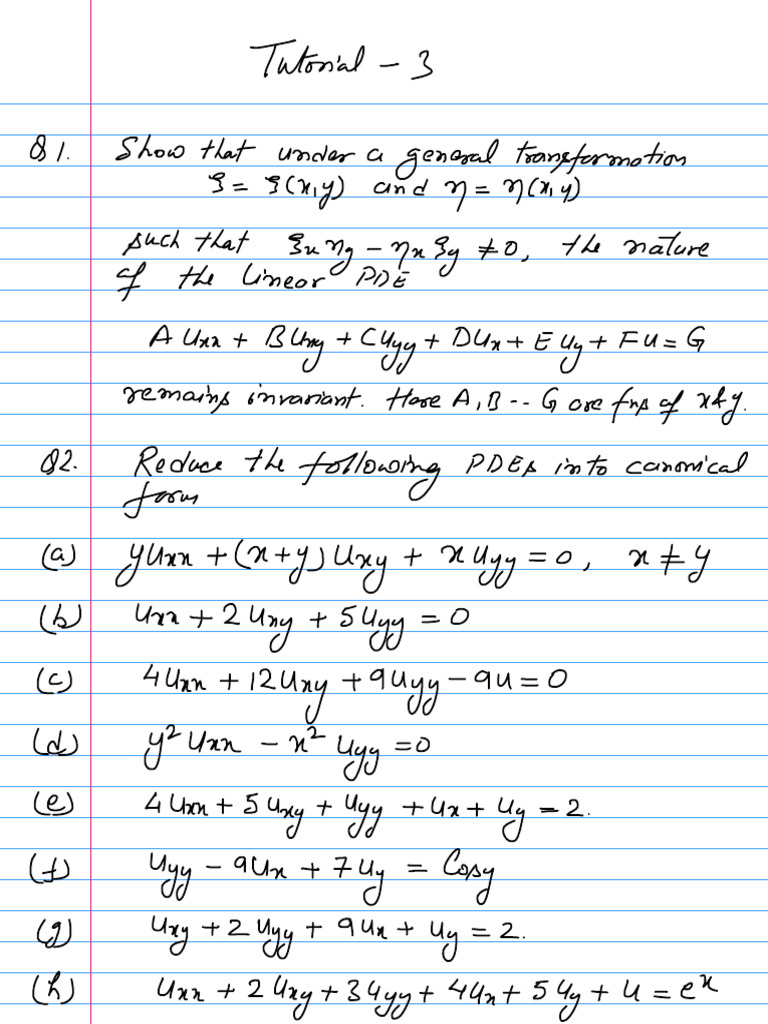 Tutorial - 3
Q1. Show that under a general transformation
ξ = ξ(x,y) and η = η(x,y)
such that ξx ηy - ηx ξy ≠ 0, the nature
of the linear PDE
A Uxx + B Uxy + C Uyy + D Ux + E Uy + F U = G
remains invariant. Here A, B -- G are fns of x & y.
Q2. Reduce the following PDEs into canonical
form
(a) y Uxx + (x+y) Uxy + x Uyy = 0, x ≠ y
(b) Uxx + 2 Uxy + 5 Uyy = 0
(c) 4 Uxx + 12 Uxy + 9 Uyy - 9 U = 0
(d) y² Uxx - x² Uyy = 0
(e) 4 Uxx + 5 Uxy + Uyy + Ux + Uy = 2.
(f) Uyy - 9 Ux + 7 Uy = Cosy
(g) Uxy + 2 Uyy + 9 Ux + Uy = 2.
(h) Uxx + 2 Uxy + 3 Uyy + 4 Ux + 5 Uy + U = eˣ